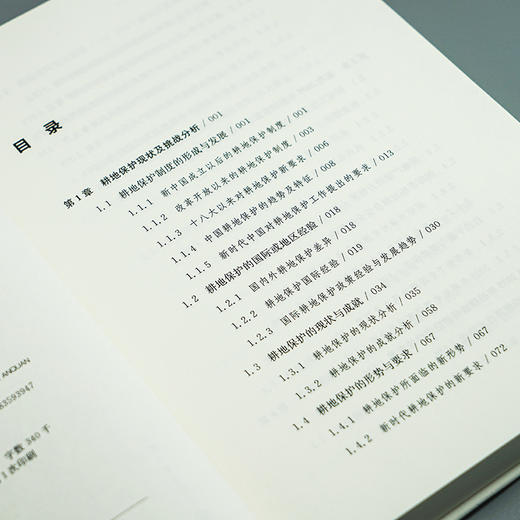 目 录
第1章 耕地保护现状及挑战分析 / 001
1.1 耕地保护制度的形成与发展 / 001
1.1.1 新中国成立以后的耕地保护制度 / 001
1.1.2 改革开放以来的耕地保护制度 / 003
1.1.3 十八大以来对耕地保护新要求 / 006
1.1.4 中国耕地保护的趋势及特征 / 008
1.1.5 新时代中国对耕地保护工作提出的要求 / 013
1.2 耕地保护的国际或地区经验 / 018
1.2.1 国内外耕地保护差异 / 018
1.2.2 耕地保护国际经验 / 019
1.2.3 国际耕地保护政策经验与发展趋势 / 030
1.3 耕地保护的现状与成就 / 034
1.3.1 耕地保护的现状分析 / 035
1.3.2 耕地保护的成就分析 / 058
1.4 耕地保护的形势与要求 / 067
1.4.1 耕地保护所面临的新形势 / 067
1.4.2 新时代耕地保护的新要求 / 072
ANQUAN
83593947
字数 340 千
1 次印刷